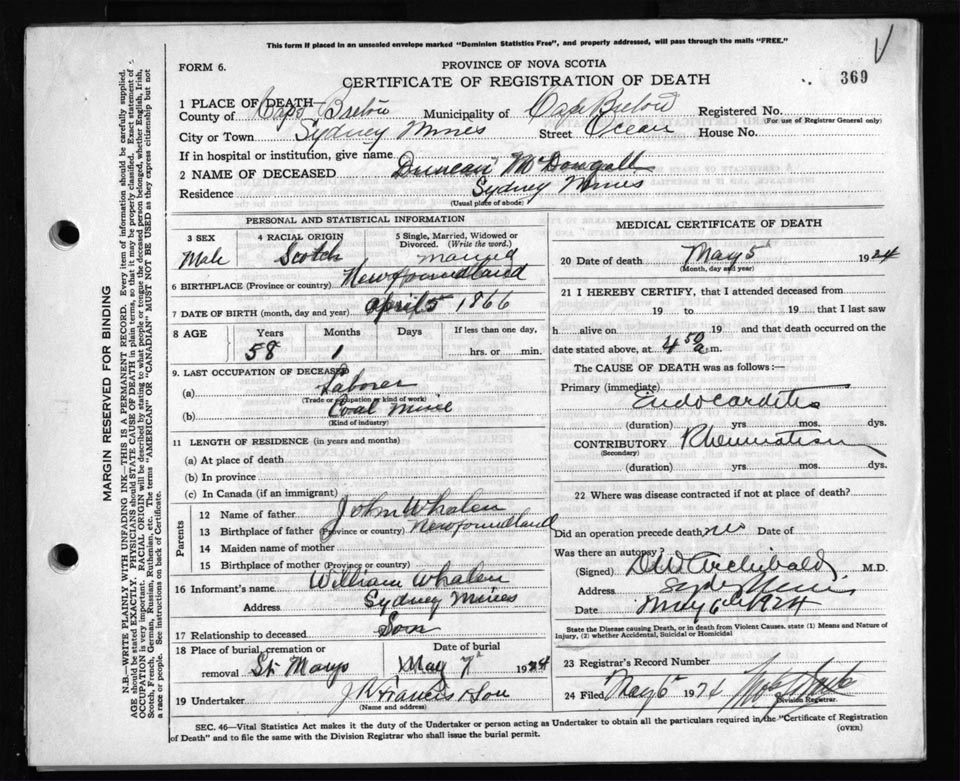 This form if placed in an unsealed envelope marked "Dominion Statistics Free", and properly addressed, will pass through the mails "FREE."
FORM 6.
PROVINCE OF NOVA SCOTIA
CERTIFICATE OF REGISTRATION OF DEATH
369
1 PLACE OF DEATH—
County of Cape Breton Municipality of Cape Breton Registered No.
(For use of Registrar General only)
City or Town Sydney Mines Street Ocean House No.
If in hospital or institution, give name
2 NAME OF DECEASED Duncan McDougall
Residence Sydney Mines
(Usual place of abode)
PERSONAL AND STATISTICAL INFORMATION
3 SEX 4 RACIAL ORIGIN 5 Single, Married, Widowed or Divorced. (Write the word.)
Male Scotch married
6 BIRTHPLACE (Province or country) Newfoundland
7 DATE OF BIRTH (month, day and year) April 5 1866
8 AGE Years Months Days If less than one day,
58 1 hrs. or min.
9. LAST OCCUPATION OF DECEASED
(a) Laborer
(Trade or occupation or kind of work)
(b) Coal Mine
(Kind of industry)
11 LENGTH OF RESIDENCE (in years and months)
(a) At place of death
(b) In province
(c) In Canada (if an immigrant)
Parents
12 Name of father John Whalen
13 Birthplace of father (Province or country) Newfoundland
14 Maiden name of mother
15 Birthplace of mother (Province or country)
16 Informant's name William Whalen
Address Sydney Mines
17 Relationship to deceased Son
18 Place of burial, cremation or removal St Marys
Date of burial
May 7th 1924
19 Undertaker J R Francis & Son
(Name and address)
MEDICAL CERTIFICATE OF DEATH
20 Date of death May 5 1924
(Month, day and year)
21 I HEREBY CERTIFY, that I attended deceased from
19 to 19 that I last saw
h alive on 19 and that death occurred on
date stated above, at 4 50 a m.
The CAUSE OF DEATH was as follows:—
Primary (immediate) Endocarditis
(duration) yrs. mos. dys.
CONTRIBUTORY Rheumatism
(Secondary)
(duration) yrs. mos. dys.
22 Where was disease contracted if not at place of death?
Did an operation precede death no Date of
Was there an autopsy?
(Signed) D W Archibald M.D.
Address Sydney Mines
Date May 6th 1924
State the Disease causing Death, or in death from Violent Causes, state (1) Means and Nature of Injury, (2) whether Accidental, Suicidal or Homicidal
23 Registrar's Record Number
24 Filed May 6th 1924
Division Registrar.
SEC. 46—Vital Statistics Act makes it the duty of the Undertaker or person acting as Undertaker to obtain all the particulars required in the "Certificate of Registration
of Death" and to file the same with the Division Registrar who shall issue the burial permit.
(OVER)
MARGIN RESERVED FOR BINDING
N.B.—WRITE PLAINLY WITH UNFADING INK—THIS IS A PERMANENT RECORD. Every item of information should be carefully supplied.
AGE should be stated EXACTLY. PHYSICIANS should STATE CAUSE OF DEATH in plain terms, so that it may be properly classified. Exact statement of
OCCUPATION is very important. RACIAL ORIGIN will be described by stating to what people or tongue the deceased person belonged, whether English, Irish,
Scotch, French, German, Russian, Ruthenian, etc. The terms "AMERICAN" OR "CANADIAN" MUST NOT BE USED as they express citizenship but not
a race or people. See instructions on back of Certificate.